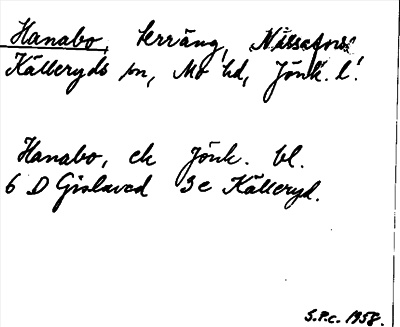 Hanabo, terräng, Nissafors
Källeryds sn, Mo hd, Jönk. l.
Hanabo, ek Jönk. bl.
6 D Gislaved 3e Källeryd.
S.P.c. 1958.